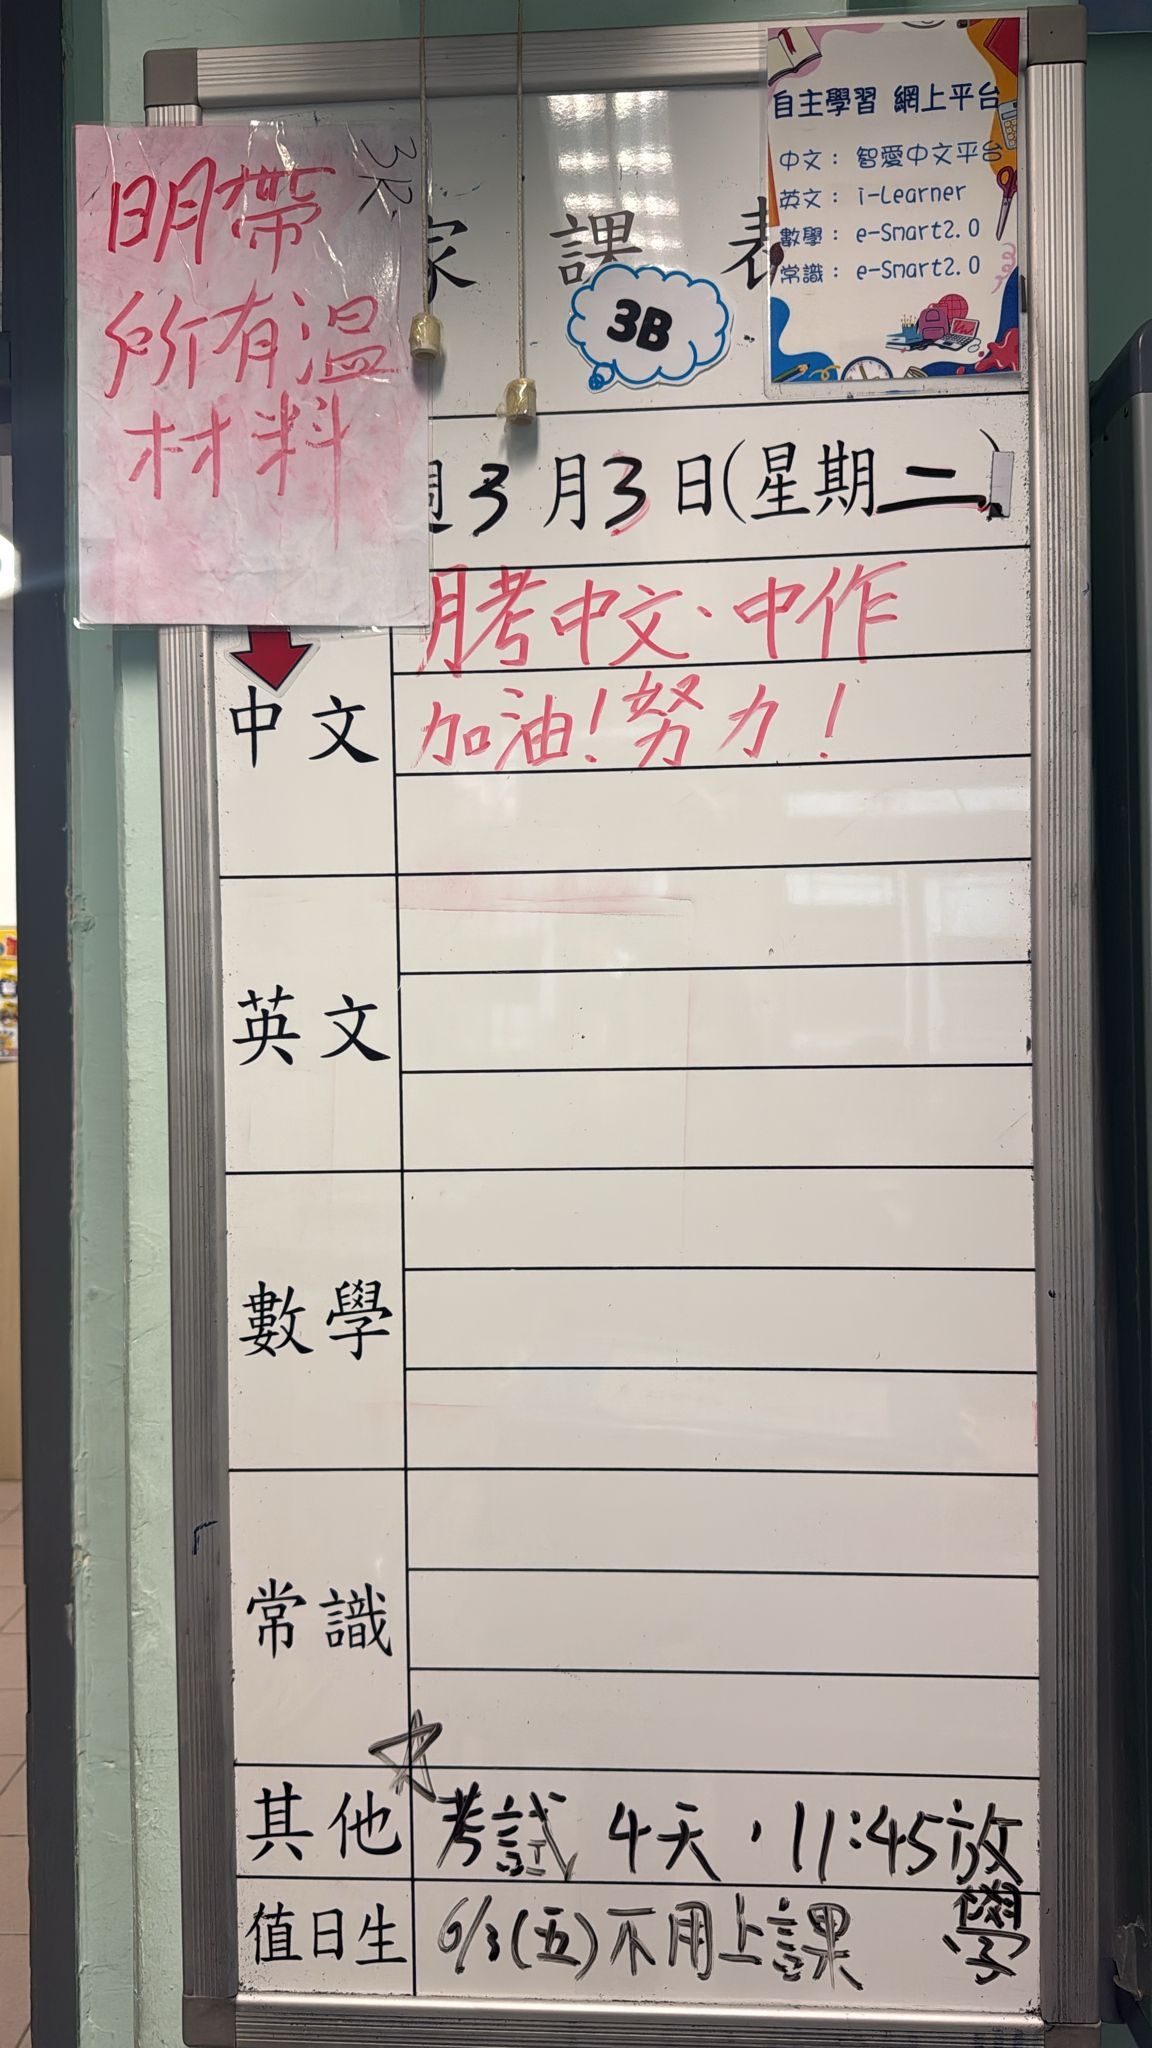 3R.
明帶
所有溫
材料
家 課 表
3B
自主學習 網上平台
中文： 智愛中文平台
英文： i-Learner
數學： e-Smart2.0
常識： e-Smart2.0
週3月3日(星期二)
中文
月考中文、中作
加油！努力！
英文
數學
常識
其他
考試 4天，11:45放學
值日生
6/3(五)不用上課